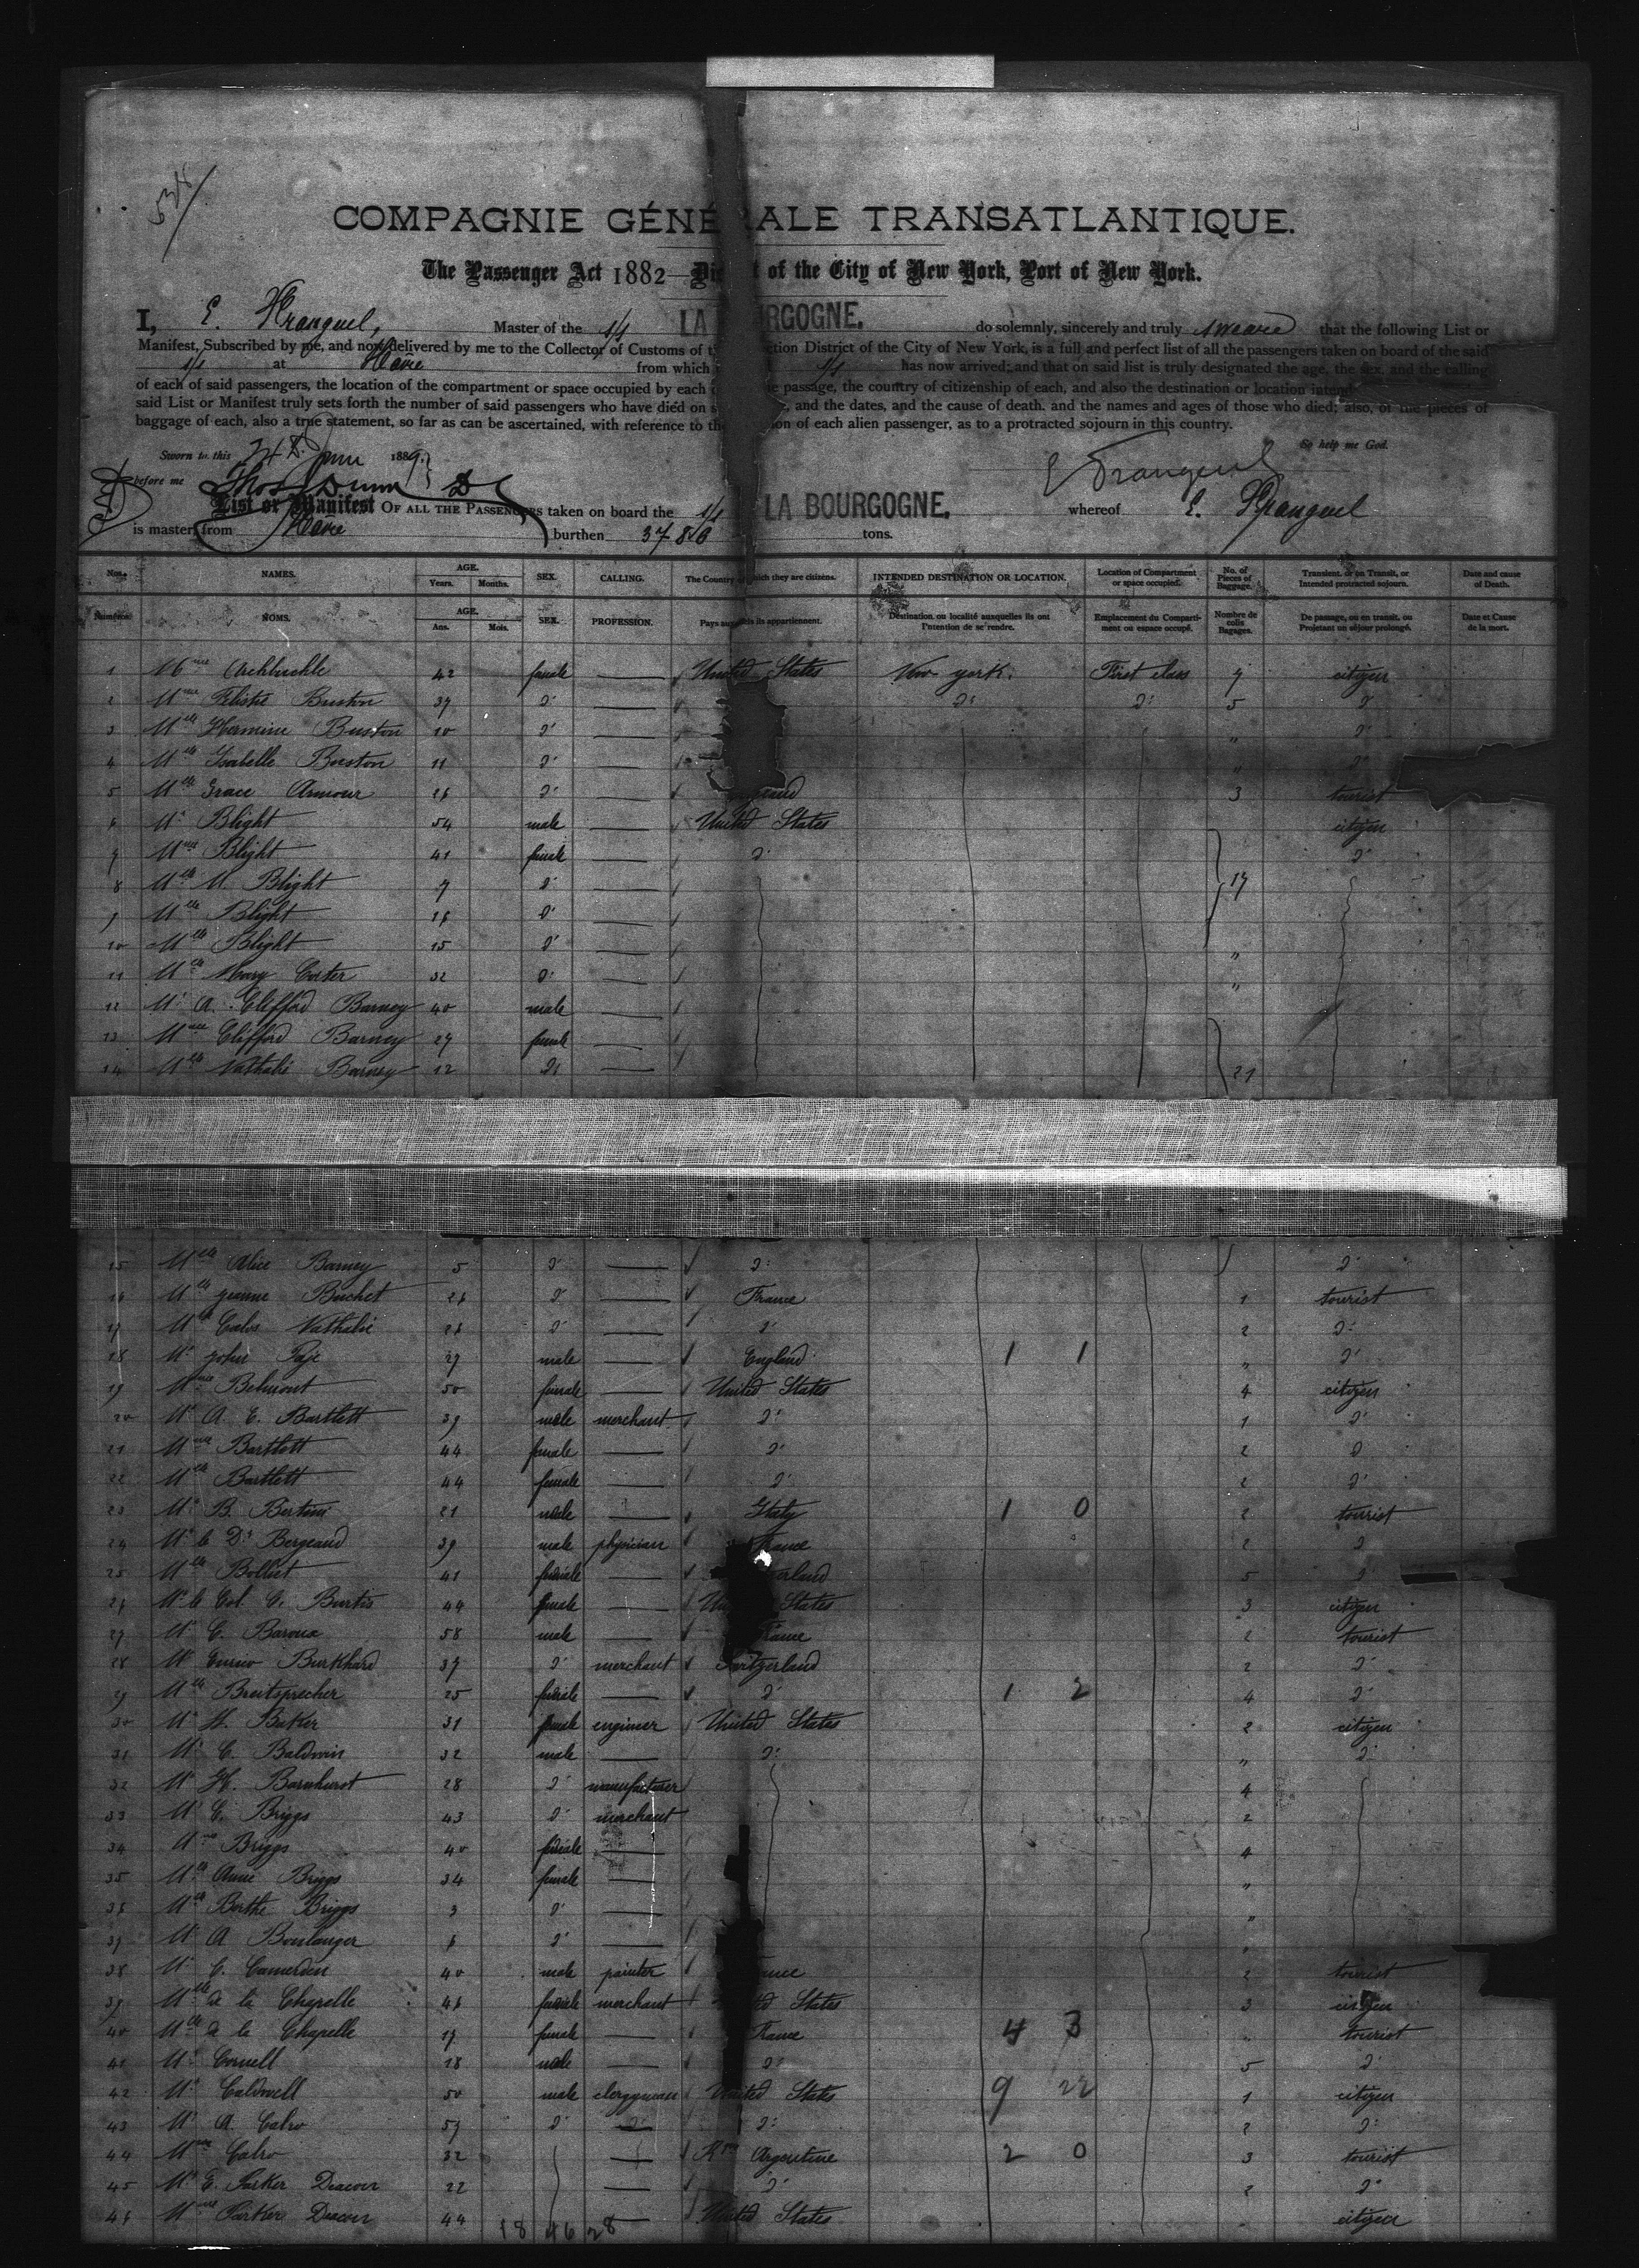 COMPAGNIE GÉNÉRALE TRANSATLANTIQUE.
The Passenger Act 1882 — Dis t of the City of New York, Port of New York.
I, E. Master of the s/s LA BOURGOGNE, do solemnly, sincerely and truly that the following List or
Manifest, Subscribed by me, and now delivered by me to the Collector of Customs of t ction District of the City of New York, is a full and perfect list of all the passengers taken on board of the said
s/s at Havre from which s/s has now arrived; and that on said list is truly designated the age, the sex, and the calling
of each of said passengers, the location of the compartment or space occupied by each e passage, the country of citizenship of each, and also the destination or location intend
said List or Manifest truly sets forth the number of said passengers who have died on s , and the dates, and the cause of death. and the names and ages of those who died; also, of the pieces of
baggage of each, also a true statement, so far as can be ascertained, with reference to th on of each alien passenger, as to a protracted sojourn in this country.
So help me God.
Sworn to this 24 June 1889.
before me Thos Dunn
List or Manifest OF ALL THE PASSENGERS taken on board the s/s LA BOURGOGNE, whereof E.
is master, from Havre burthen tons.
Nos. NAMES. AGE. Years. Months. SEX. CALLING. The Country of which they are citizens. INTENDED DESTINATION OR LOCATION. Location of Compartment or space occupied. No. of Pieces of Baggage. Transient. or on Transit, or Intended protracted sojourn. Date and cause of Death.
Numéros NOMS. AGE. Ans. Mois. SEX. PROFESSION. Pays auxquels ils appartiennent. Destination ou localité auxquelles ils ont l'intention de se rendre. Emplacement du Compartiment ou espace occupé. Nombre de colis Bagages. De passage, ou en transit, ou Projetant un séjour prolongé. Date et Cause de la mort.
1 Mme Archbuckle 42 female United States New york. First class 7 citizen
2 Mme Buston 37 do do do 5 do
3 Mlle Hermine Buston 10 do " do
4 Mlle Isabelle Buston 11 do " do
5 Mlle Grace Armour 26 do 3 tourist
6 Mr Blight 54 male United States citizen
7 Mme Blight 41 female do do
8 Mlle M. Blight 7 do 17
9 Mlle Blight 16 do
10 Mlle Blight 15 do "
11 Mlle Mary Carter 32 do "
12 Mr A. Clifford Barney 40 male
13 Mme Clifford Barney 27 female
14 Mlle Nathalie Barney 12 do 21
15 Mlle Alice Barney 5 do do do
16 Mlle Jeanne Buchet 26 do France 1 tourist
17 Mlle Calos Nathalie 26 do do 2 do
18 Mr John Page 27 male England 1 1 " do
19 Mme Belmont 50 female United States 4 citizen
20 Mr A. E. Bartlett 39 male merchant do 1 do
21 Mme Bartlett 44 female do 2 do
22 Mlle Bartlett 44 female do 2 do
23 Mr B. Bertini 21 male Italy 1 0 2 tourist
24 Mr le Dr Bergeaud 39 male physician France 2 do
25 Mlle Bolliet 41 female erland 5 do
26 Mr le Col. C. Burtis 44 female Un States 3 citizen
27 Mr C. Baroux 58 male France 2 tourist
28 Mr Enrico Burkhard 37 do merchant Switzerland 2 do
29 Mlle Breitsprecher 25 female do 1 2 4 do
30 Mr H. Baker 31 female engineer United States 2 citizen
31 Mr C. Baldwin 32 male do " do
32 Mr H. Barnhurst 28 do manufacturer 4
33 Mr C. Briggs 43 do merchant 2
34 Mme Briggs 40 female 4
35 Mlle Annie Briggs 34 female "
36 Mlle Berthe Briggs 3 do "
37 Mr A Boulanger 6 do "
38 Mr C. Camerden 40 male painter ance 2 tourist
39 Mlle de la Chapelle 46 female merchant ted States 3 citizen
40 Mlle de la Chapelle 17 female France 4 3 " tourist
41 Mr Cornell 18 male do 5 do
42 Mr Caldwell 50 male clergyman United States 9 22 1 citizen
43 Mr A. Calvo 57 do do do 2 do
44 Mme Calvo 32 Argentine 2 0 3 tourist
45 Mr E. Parker Deacon 22 do 2 do
46 Mme Parker Deacon 44 United States citizen
18 46 28